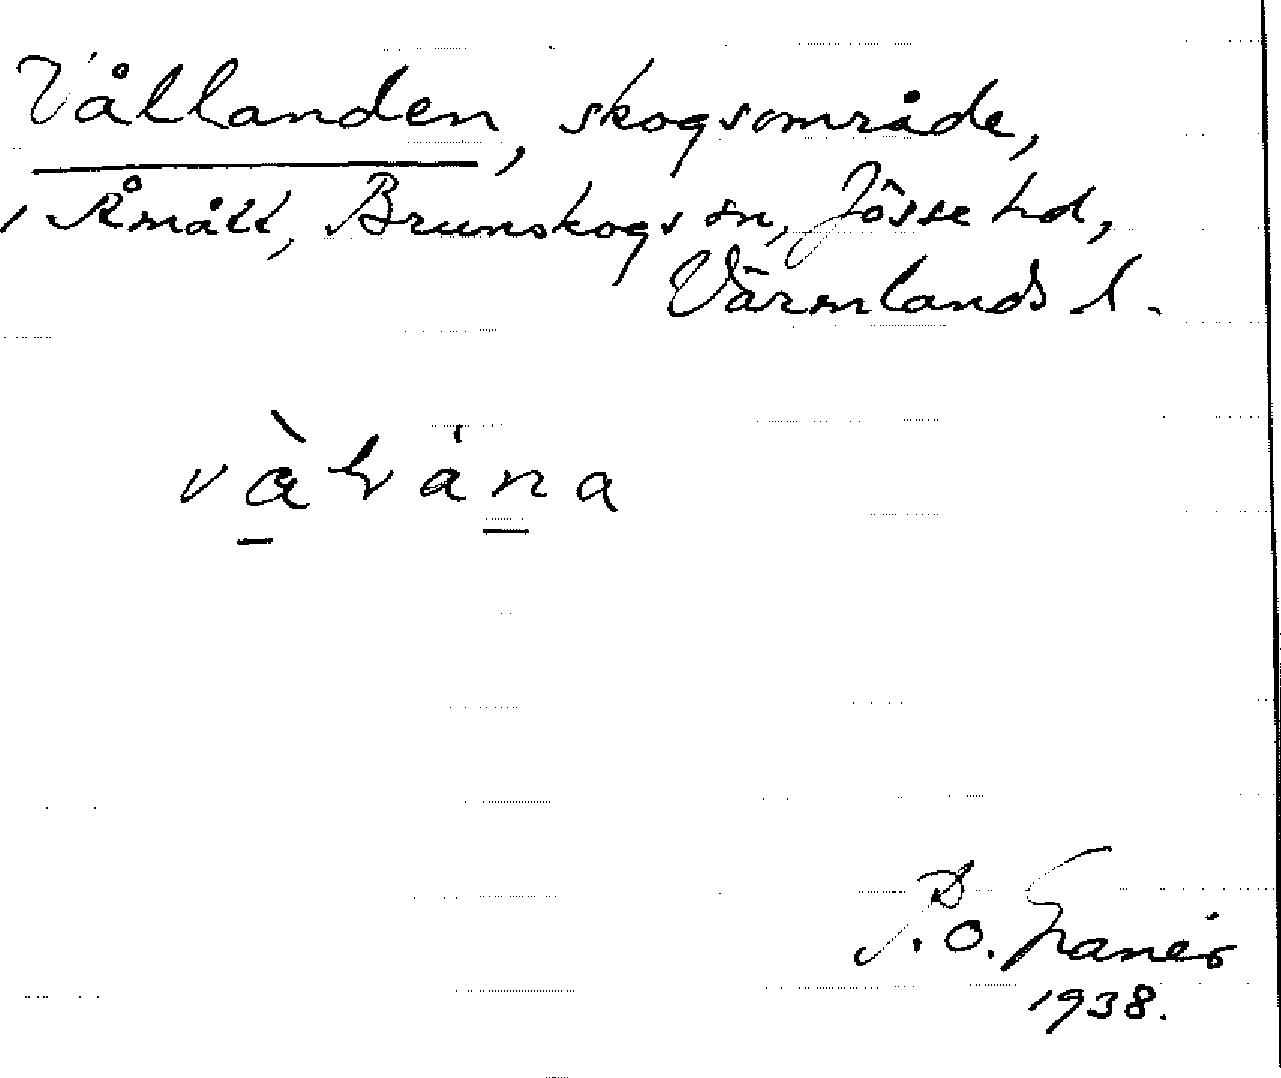 Vållanden, skogsområde,
i Åmått, Brunskogs sn, Jösse hd,
Värmlands l.
P. O. Granér
1938.